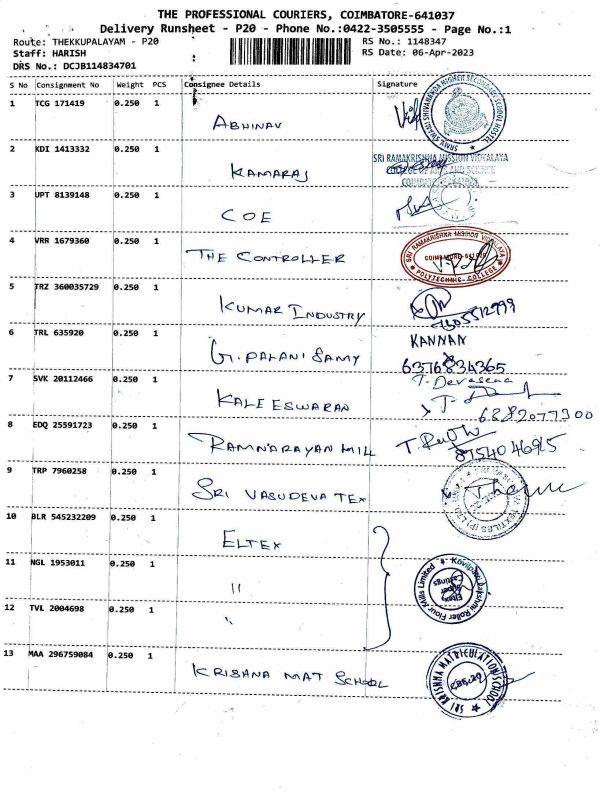 THE PROFESSIONAL COURIERS, COIMBATORE-641037
Delivery Runsheet - P20 - Phone No.:0422-3505555 - Page No.:1
Route: THEKKUPALAYAM - P20 RS No.: 1148347
Staff: HARISH RS Date: 06-Apr-2023
DRS No.: DCJB114834701
S No Consignment No Weight PCS Consignee Details Signature
1 TCG 171419 0.250 1 ABHINAV
2 KDI 1413332 0.250 1 KAMARAJ
SRI RAMAKRISHNA MISSION VIDYALAYA
COLLEGE OF ARTS AND SCIENCE
3 UPT 8139148 0.250 1 COE
4 VRR 1679360 0.250 1 THE CONTROLLER
SRI RAMAKRISHNA MISSION VIDYALAYA
POLYTECHNIC COLLEGE
5 TRZ 360035729 0.250 1 KUMAR INDUSTRY
6 TRL 635920 0.250 1 G. PALANI SAMY KANNAN
6376834365
7 SVK 20112466 0.250 1 KALEESWARAN T. Devasena
6882077300
8 EDQ 25591723 0.250 1 RAMNARAYAN MILL
9 TRP 7960258 0.250 1 SRI VASUDEVA TEX
10 BLR 545232209 0.250 1 ELTEX
11 NGL 1953011 0.250 1 "
12 TVL 2004698 0.250 1 "
13 MAA 296759084 0.250 1 KRISANA MAT SCHOOL
SRI KRISHNA MATRICULATION SCHOOL